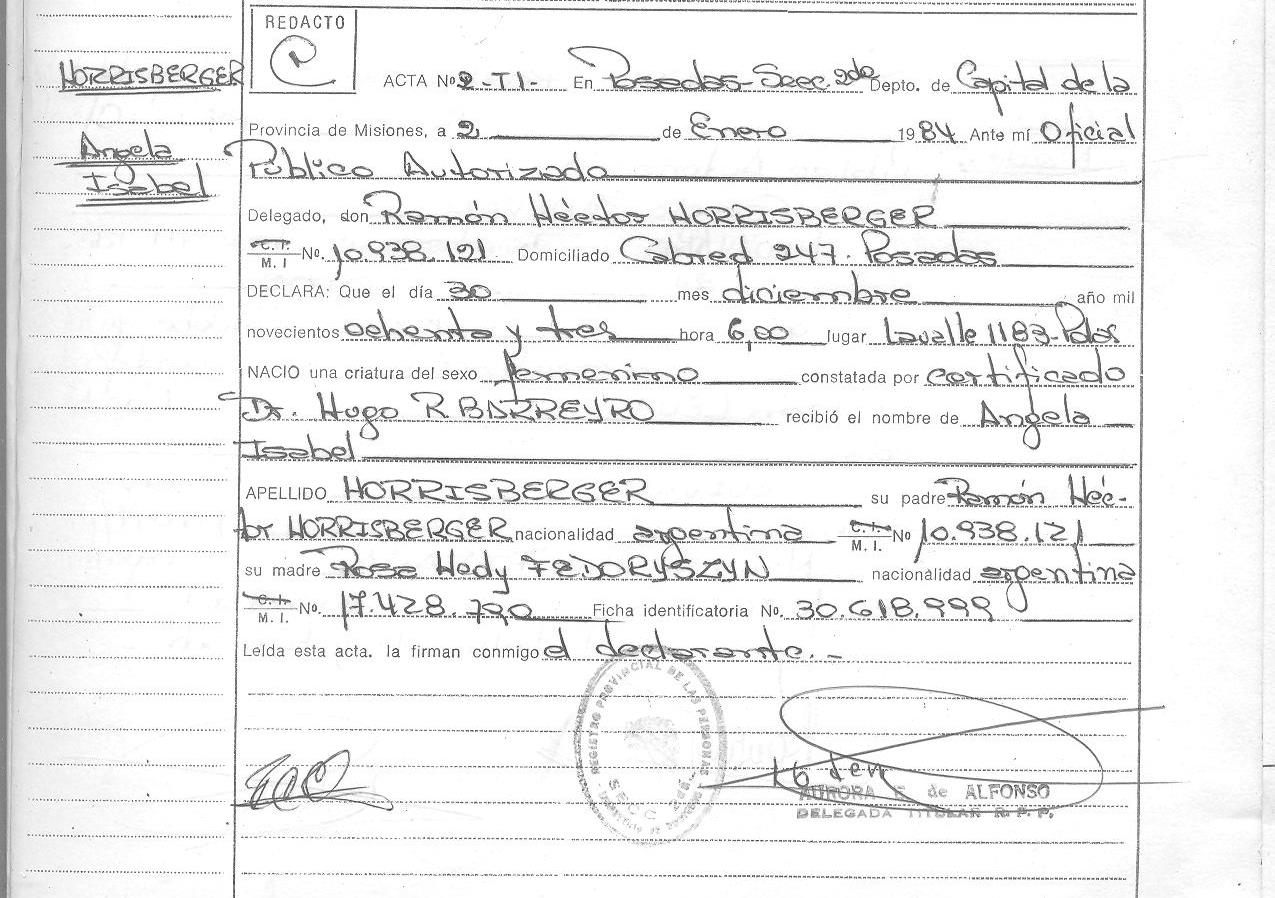 REDACTO
HORRISBERGER
Angela
Isabel
ACTA Nº 2-T I- En Posadas-Secc 2da Depto. de Capital de la
Provincia de Misiones, a 2 de Enero 1984 Ante mí Oficial
Público Autorizado
Delegado, don Ramón Héctor HORRISBERGER
C. I. M. I No. 10.938.121 Domiciliado Cabred 247. Posadas
DECLARA: Que el día 30 mes diciembre año mil
novecientos ochenta y tres hora 6,00 lugar Lavalle 1183-Pdas
NACIO una criatura del sexo femenino constatada por certificado
Dr. Hugo R. BARREYRO recibió el nombre de Angela
Isabel
APELLIDO HORRISBERGER su padre Ramón Héc-
tor HORRISBERGER nacionalidad argentina C. I. M. I. Nº 10.938.121
su madre Rosa Hedy FEDORYSZYN nacionalidad argentina
C. I. M. I. No. 17.428.790 Ficha identificatoria No. 30.618.999
Leída esta acta. la firman conmigo el declarante.-
REGISTRO PROVINCIAL DE LAS PERSONAS
SECC
AURORA de ALFONSO
DELEGADA TITULAR R. P. P.